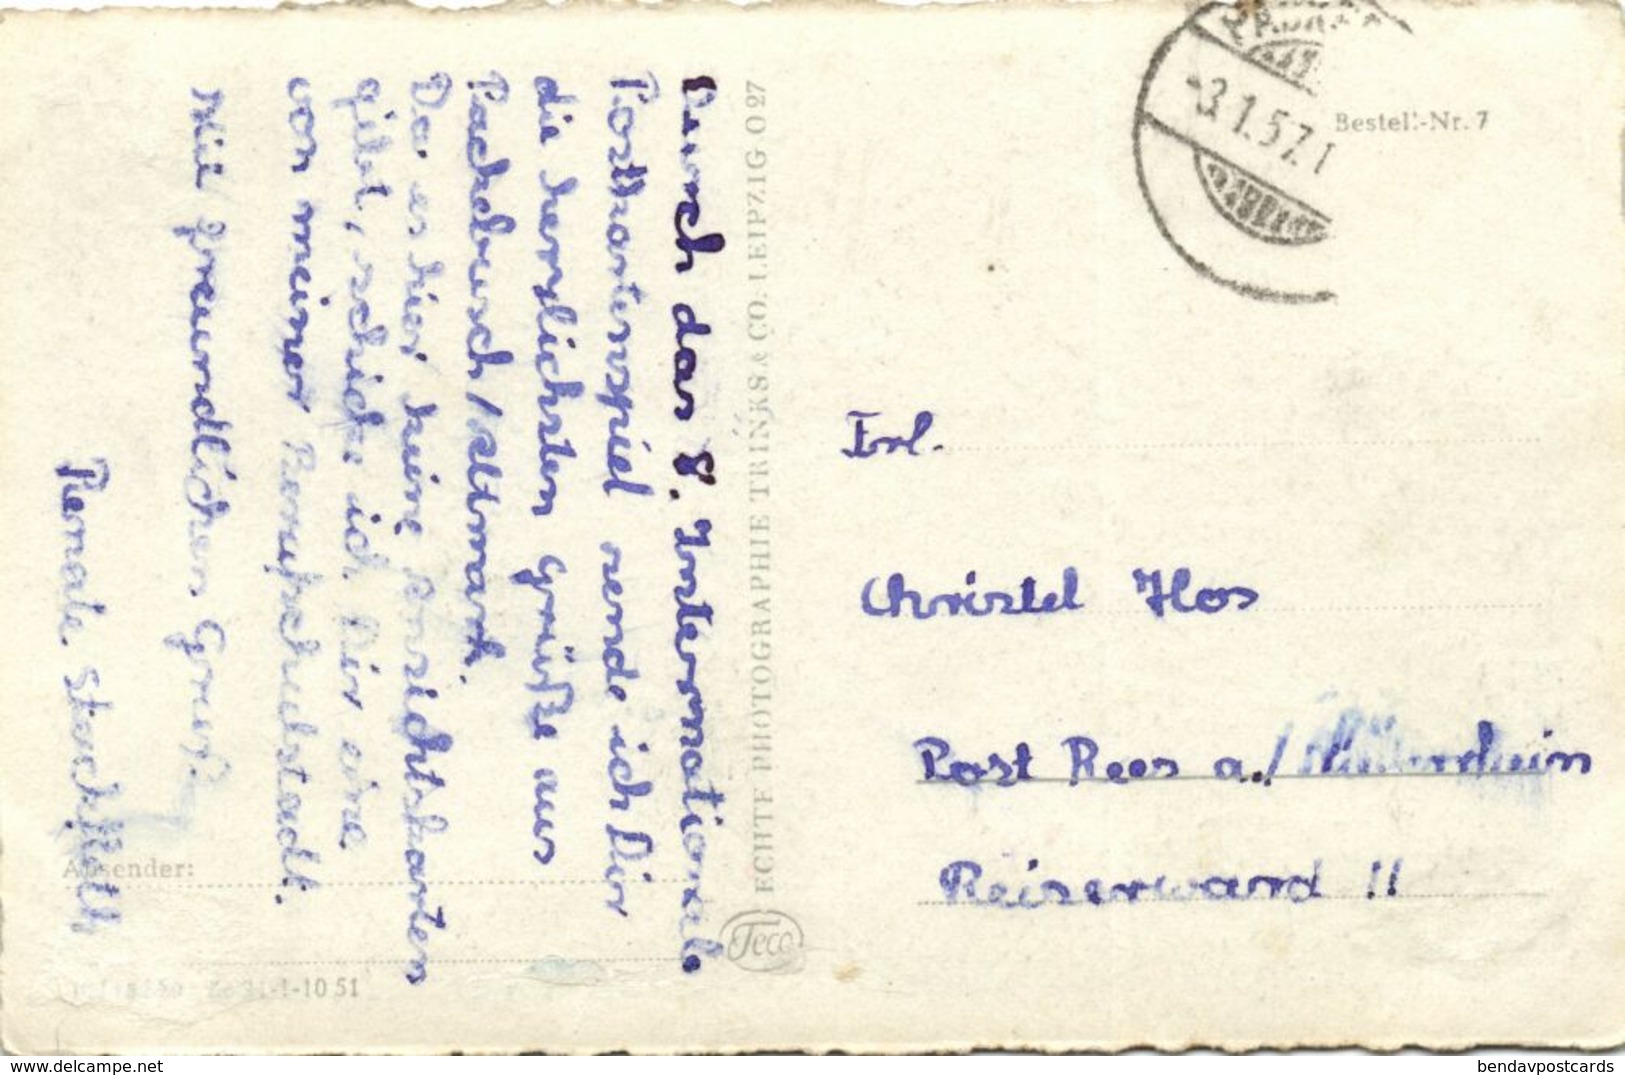 Durch das 8. Internationale
Postkartenspiel sende ich Dir
die herzlichsten Grüße aus
Packebusch/Altmark.
Da es hier keine Ansichtskarten
gibt, schicke ich Dir eine
von meiner Berufsschulstadt.
Mit freundlichen Gruß.
Renate
Absender:
10 51
ECHTE PHOTOGRAPHIE TRINKS & CO. LEIPZIG O 27
Teco
-3.1.57.1
Bestell-Nr. 7
Frl.
Christel Hos
Post Rees a./Niederrhein
Reiserward 11
bendavpostcards